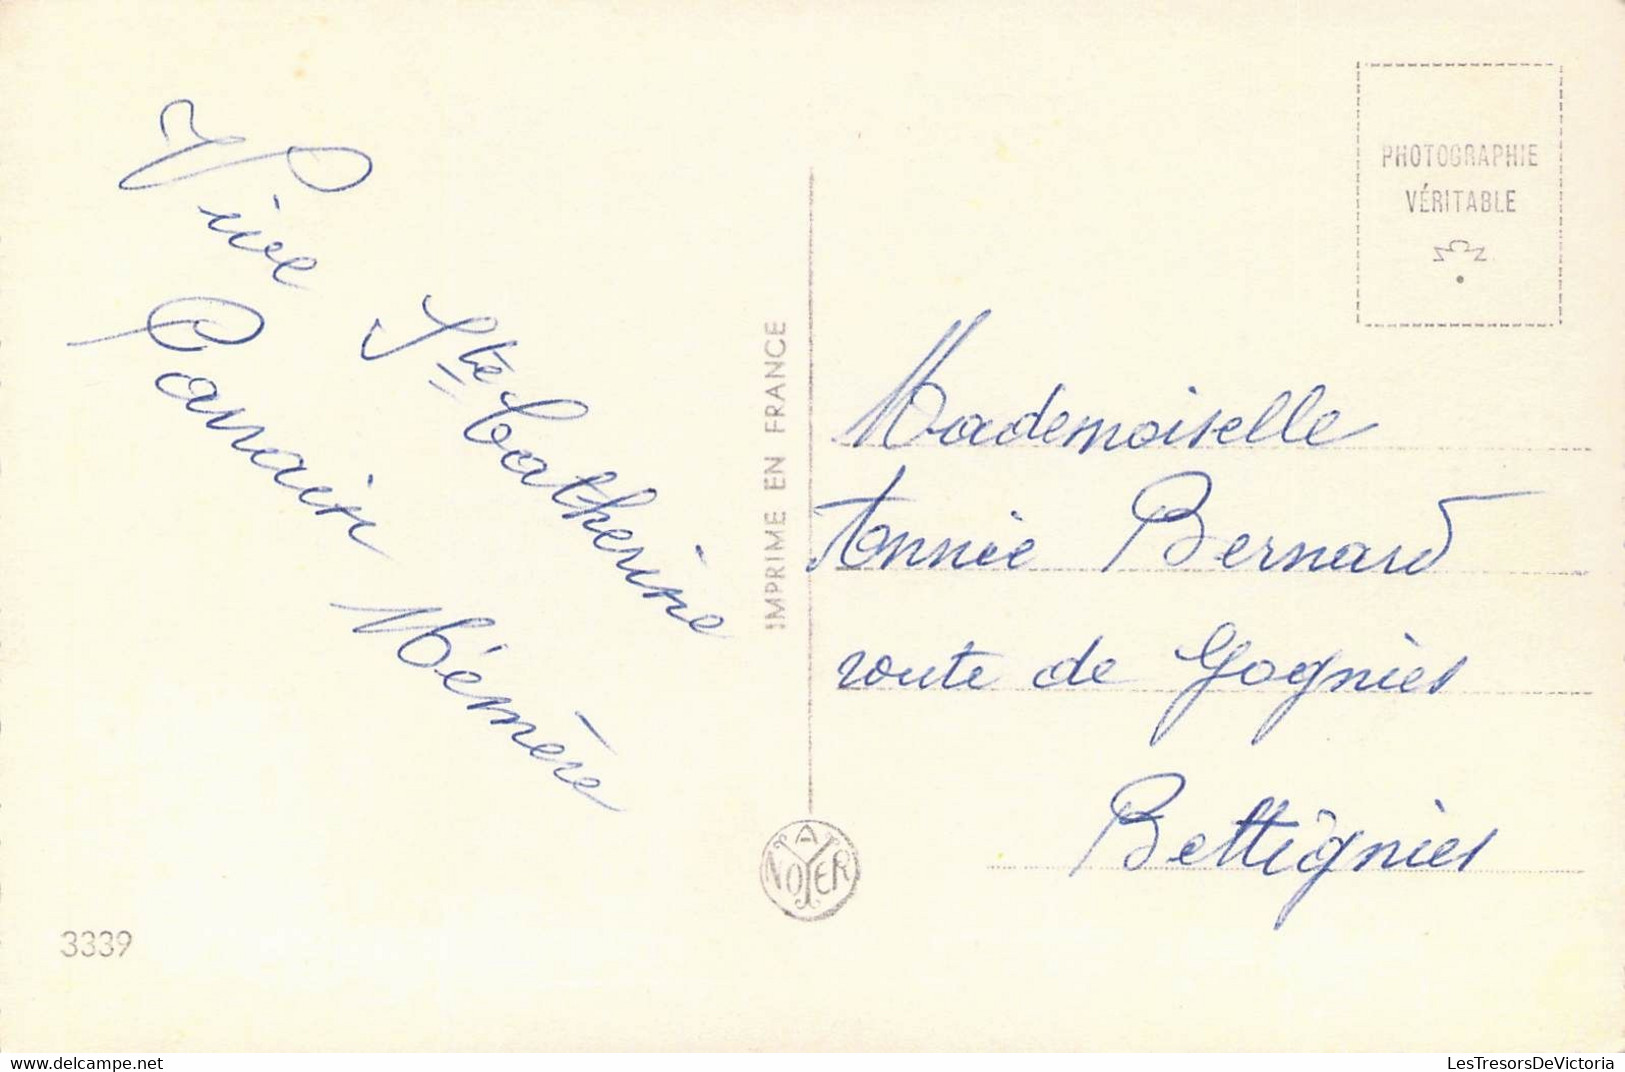 Vive
Ste Catherine
Parrain Mémère
IMPRIME EN FRANCE
PHOTOGRAPHIE
VÉRITABLE
Mademoiselle
Annie Bernard
route de Gognies
Bettignies
A
NOYER
3339
LesTresorsDeVictoria